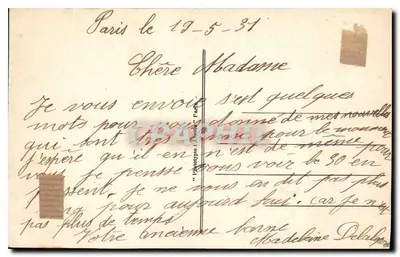 Paris le 19-5-31
Chère Madame
Je vous envoie s'est quelques
mots pour vous donné de mes nouvelles
qui sont très pour le moment
j'espère qu'il en n'est de même pour
vous je pensse vous voir le 30 en
passent, je ne vous en dit pas plus
pour aujourd hui. car je n'ai
pas plus de temps
Votre ancienne bonne
Madeleine